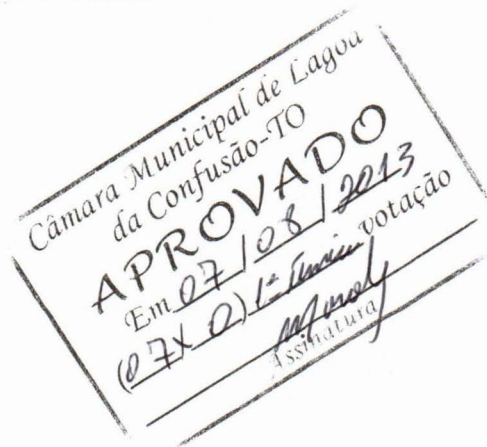 Câmara Municipal de Lagoa
da Confusão-TO
APROVADO
Em 07/08/2013
(07x0) 1ª votação
Assinatura